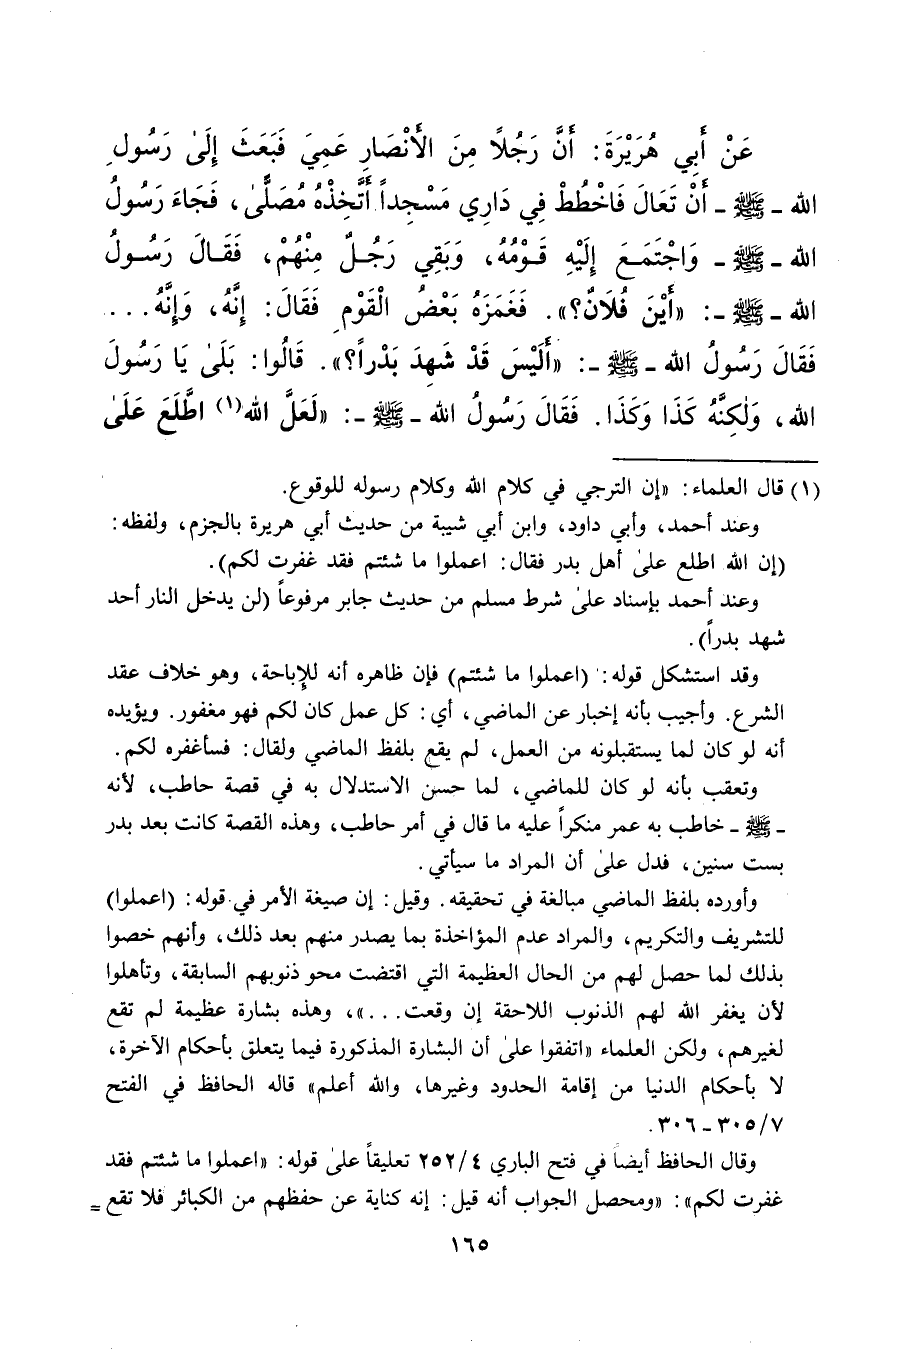 عَنْ أَبِي هُرَيْرَةَ: أَنَّ رَجُلاً مِنَ الأَنْصَارِ عَمِيَ فَبَعَثَ إِلَىٰ رَسُولِ
الله ـ ﷺ ـ أَنْ تَعَالَ فَاخْطُطْ فِي دَارِي مَسْجِداً أَتَّخِذْهُ مُصَلًّىٰ، فَجَاءَ رَسُولُ
الله ـ ﷺ ـ وَاجْتَمَعَ إِلَيْهِ قَوْمُهُ، وَبَقِي رَجُلٌ مِنْهُمْ، فَقَالَ رَسُولُ
الله ـ ﷺ ـ: «أَيْنَ فُلَانٌ؟». فَغَمَزَهُ بَعْضُ الْقَوْمِ فَقَالَ: إِنَّهُ، وَإِنَّهُ...
فَقَالَ رَسُولُ الله ـ ﷺ ـ: «أَلَيْسَ قَدْ شَهِدَ بَدْراً؟». قَالُوا: بَلَىٰ يَا رَسُولَ
الله، وَلٰكِنَّهُ كَذَا وَكَذَا. فَقَالَ رَسُولُ الله ـ ﷺ ـ: «لَعَلَّ الله(١) اطَّلَعَ عَلَىٰ
(١) قال العلماء: «إن الترجي في كلام الله وكلام رسوله للوقوع.
وعند أحمد، وأبي داود، وابن أبي شيبة من حديث أبي هريرة بالجزم، ولفظه:
(إن الله اطلع علىٰ أهل بدر فقال: اعملوا ما شئتم فقد غفرت لكم).
وعند أحمد بإسناد علىٰ شرط مسلم من حديث جابر مرفوعاً (لن يدخل النار أحد
شهد بدراً).
وقد استشكل قوله: (اعملوا ما شئتم) فإن ظاهره أنه للإباحة، وهو خلاف عقد
الشرع. وأجيب بأنه إخبار عن الماضي، أي: كل عمل كان لكم فهو مغفور. ويؤيده
أنه لو كان لما يستقبلونه من العمل، لم يقع بلفظ الماضي ولقال: فسأغفره لكم.
وتعقب بأنه لو كان للماضي، لما حسن الاستدلال به في قصة حاطب، لأنه
ـ ﷺ ـ خاطب به عمر منكراً عليه ما قال في أمر حاطب، وهذه القصة كانت بعد بدر
بست سنين، فدل علىٰ أن المراد ما سيأتي.
وأورده بلفظ الماضي مبالغة في تحقيقه. وقيل: إن صيغة الأمر في قوله: (اعملوا)
للتشريف والتكريم، والمراد عدم المؤاخذة بما يصدر منهم بعد ذلك، وأنهم خصوا
بذلك لما حصل لهم من الحال العظيمة التي اقتضت محو ذنوبهم السابقة، وتأهلوا
لأن يغفر الله لهم الذنوب اللاحقة إن وقعت...»، وهذه بشارة عظيمة لم تقع
لغيرهم، ولكن العلماء «اتفقوا علىٰ أن البشارة المذكورة فيما يتعلق بأحكام الآخرة،
لا بأحكام الدنيا من إقامة الحدود وغيرها، والله أعلم» قاله الحافظ في الفتح
٣٠٥/٧ ـ ٣٠٦.
وقال الحافظ أيضاً في فتح الباري ٢٥٢/٤ تعليقاً علىٰ قوله: «اعملوا ما شئتم فقد
غفرت لكم»: «ومحصل الجواب أنه قيل: إنه كناية عن حفظهم من الكبائر فلا تقع =
١٦٥